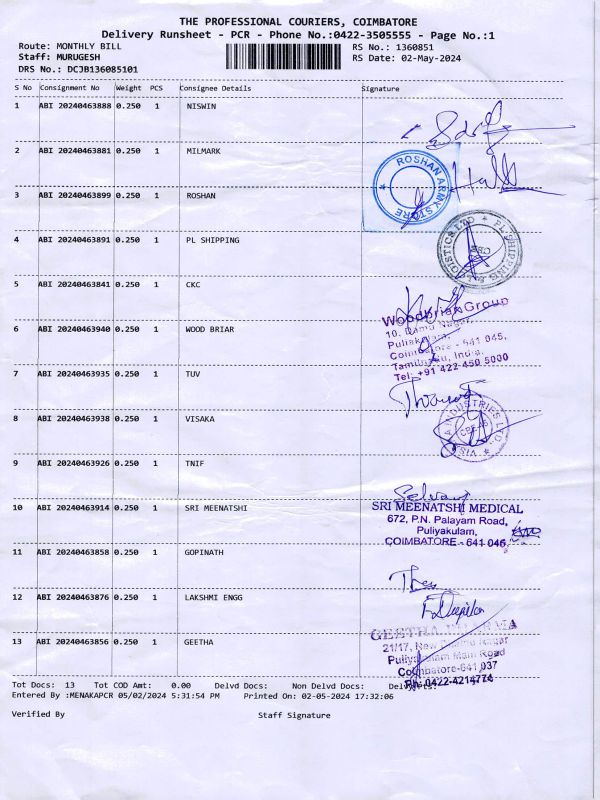 THE PROFESSIONAL COURIERS, COIMBATORE
Delivery Runsheet - PCR - Phone No.:0422-3505555 - Page No.:1
Route: MONTHLY BILL
RS No.: 1360851
Staff: MURUGESH
RS Date: 02-May-2024
DRS No.: DCJB136085101
S No Consignment No Weight PCS Consignee Details Signature
1 ABI 20240463888 0.250 1 NISWIN
2 ABI 20240463881 0.250 1 MILMARK
ROSHAN ARMY STORE
3 ABI 20240463899 0.250 1 ROSHAN
4 ABI 20240463891 0.250 1 PL SHIPPING
PL SHIPPING & LOGISTICS LTD
5 ABI 20240463841 0.250 1 CKC
Woodbriar Group
6 ABI 20240463940 0.250 1 WOOD BRIAR
10, Damu Nagar,
Puliakulam,
Coimbatore - 641 045,
Tamilnadu, India.
Tel: +91 422 450 5000
7 ABI 20240463935 0.250 1 TUV
8 ABI 20240463938 0.250 1 VISAKA
VISAKA INDUSTRIES LTD.
9 ABI 20240463926 0.250 1 TNIF
Selvaraj
10 ABI 20240463914 0.250 1 SRI MEENATSHI
SRI MEENATSHI MEDICAL
672, P.N. Palayam Road,
Puliyakulam,
COIMBATORE - 641 046.
11 ABI 20240463858 0.250 1 GOPINATH
12 ABI 20240463876 0.250 1 LAKSHMI ENGG
13 ABI 20240463856 0.250 1 GEETHA
GEETHA PHARMA
21/17, New Damu Nagar
Puliyakulam Main Road
Coimbatore-641 037
Ph: 0422-4214774
Tot Docs: 13 Tot COD Amt: 0.00 Delvd Docs: Non Delvd Docs:
Entered By :MENAKAPCR 05/02/2024 5:31:54 PM Printed On: 02-05-2024 17:32:06
Verified By Staff Signature